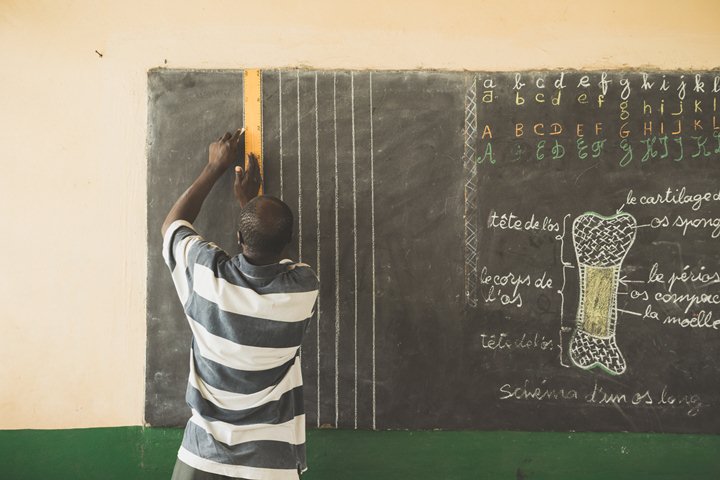 a b c d e f g h i j k l
a b c d e f g h i j k l
A B C D E F G H I J K L
A E D E F G H I J K L
le cartilage d
tête de l'ôs
os spong
le corps de
l'ôs
le périos
os compac
la moëlle
tête de l'ôs
Schéma d'un os long